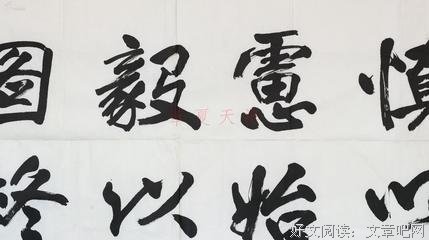 慎以
慮始
毅以
圖終
夏天
好文阅读：文章吧网